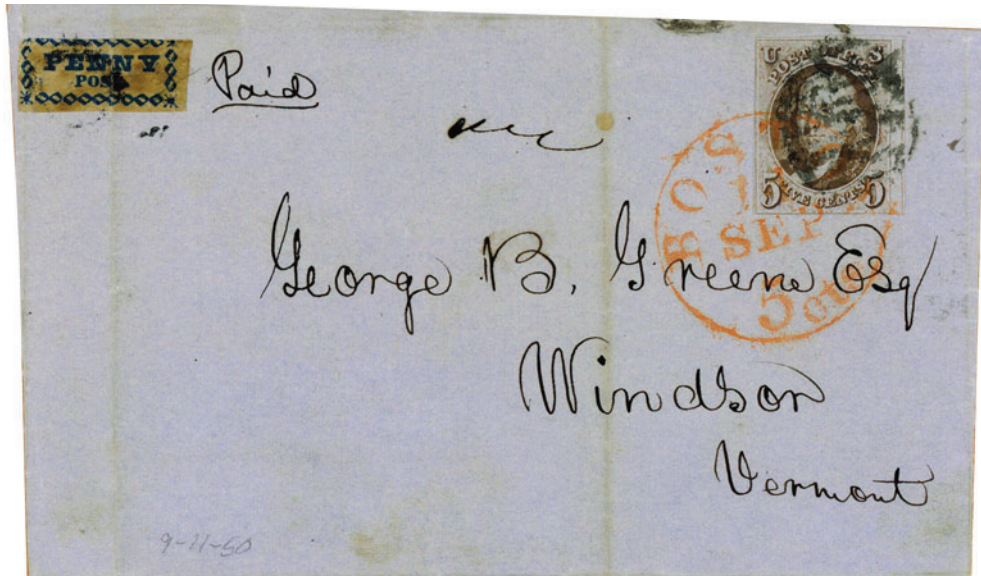 PENNY
POST
Paid
U S
POST OFFICE
5 FIVE CENTS 5
BOSTON
11
SEP
5 cts
George B. Greene Esq
Windsor
Vermont
9-11-50